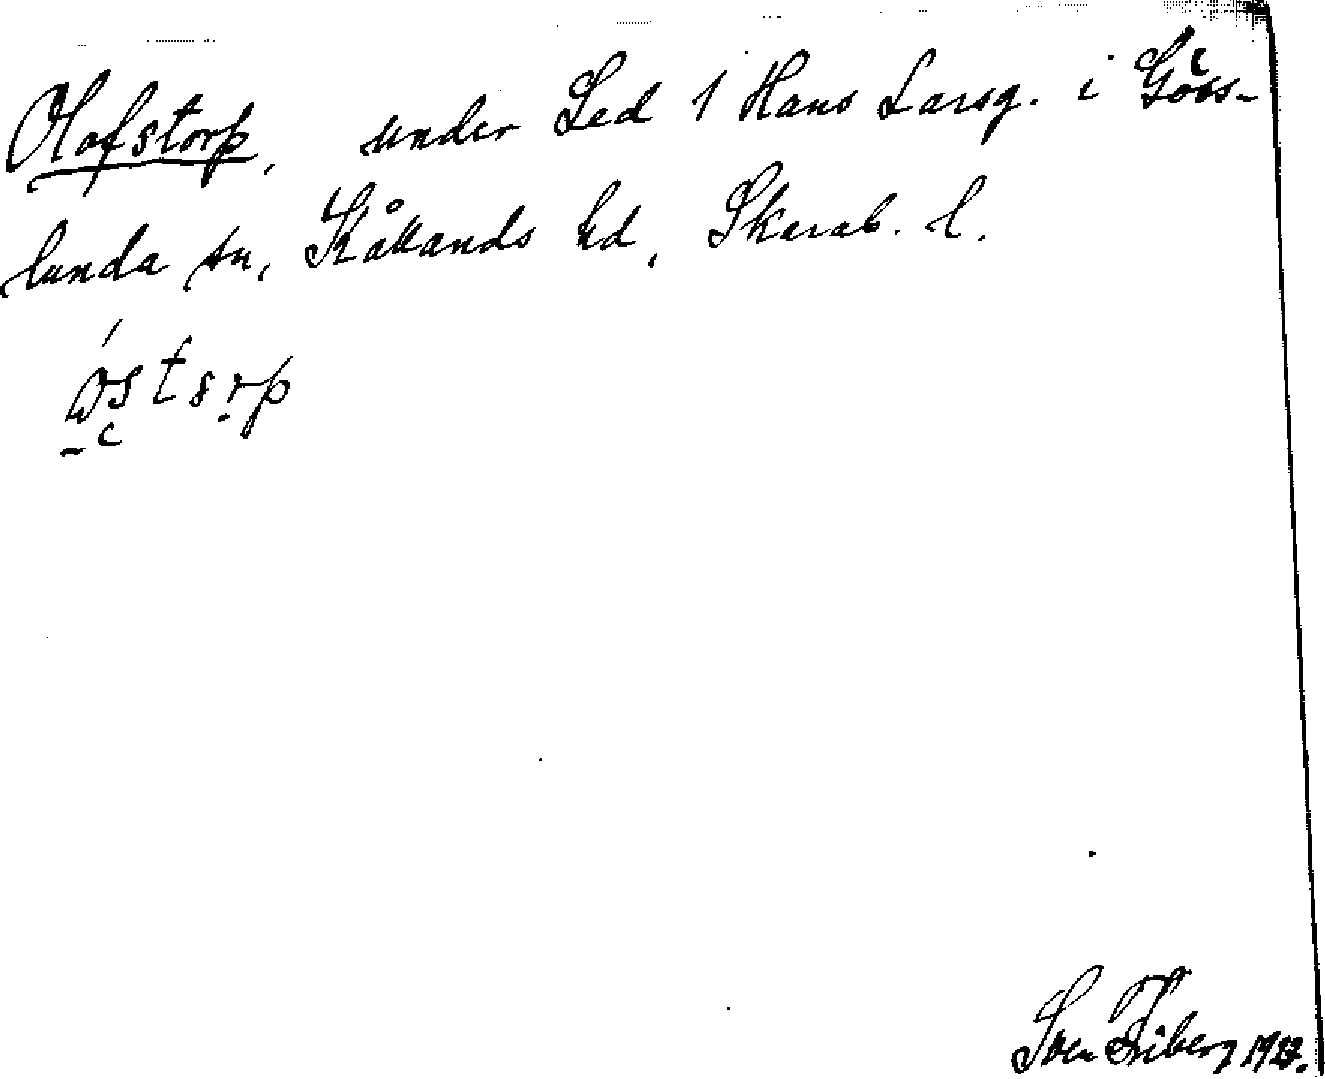 Olofstorp, under Led 1 Hans Larsg. i Göss-
lunda sn, Kållands hd, Skarab. l.
Sven Friberg